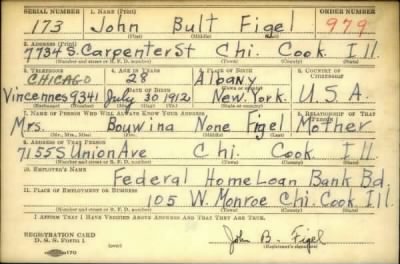 SERIAL NUMBER 1. NAME (Print) ORDER NUMBER
173 John Bult Figel 979
(First) (Middle) (Last)
2. ADDRESS (Print)
7734 S. Carpenter St Chi. Cook Ill.
(Number and street or R. F. D. number) (Town) (County) (State)
3. TELEPHONE 4. AGE IN YEARS 5. PLACE OF BIRTH 6. COUNTRY OF CITIZENSHIP
CHICAGO 28 Albany
DATE OF BIRTH (Town or county)
Vincennes 9341 July 30 1912 New York. U.S.A.
(Exchange) (Number) (Mo.) (Day) (Yr.) (State or country)
7. NAME OF PERSON WHO WILL ALWAYS KNOW YOUR ADDRESS 8. RELATIONSHIP OF THAT PERSON
Mrs. Bouwina None Figel Mother
(Mr., Mrs., Miss) (First) (Middle) (Last)
9. ADDRESS OF THAT PERSON
7155 S Union Ave Chi. Cook Ill.
(Number and street or R. F. D. number) (Town) (County) (State)
10. EMPLOYER'S NAME
Federal Home Loan Bank Bd.
11. PLACE OF EMPLOYMENT OR BUSINESS
105 W. Monroe Chi. Cook Ill.
(Number and street or R. F. D. number) (Town) (County) (State)
I AFFIRM THAT I HAVE VERIFIED ABOVE ANSWERS AND THAT THEY ARE TRUE.
REGISTRATION CARD
D. S. S. Form 1
John B. Figel
(Registrant's signature)